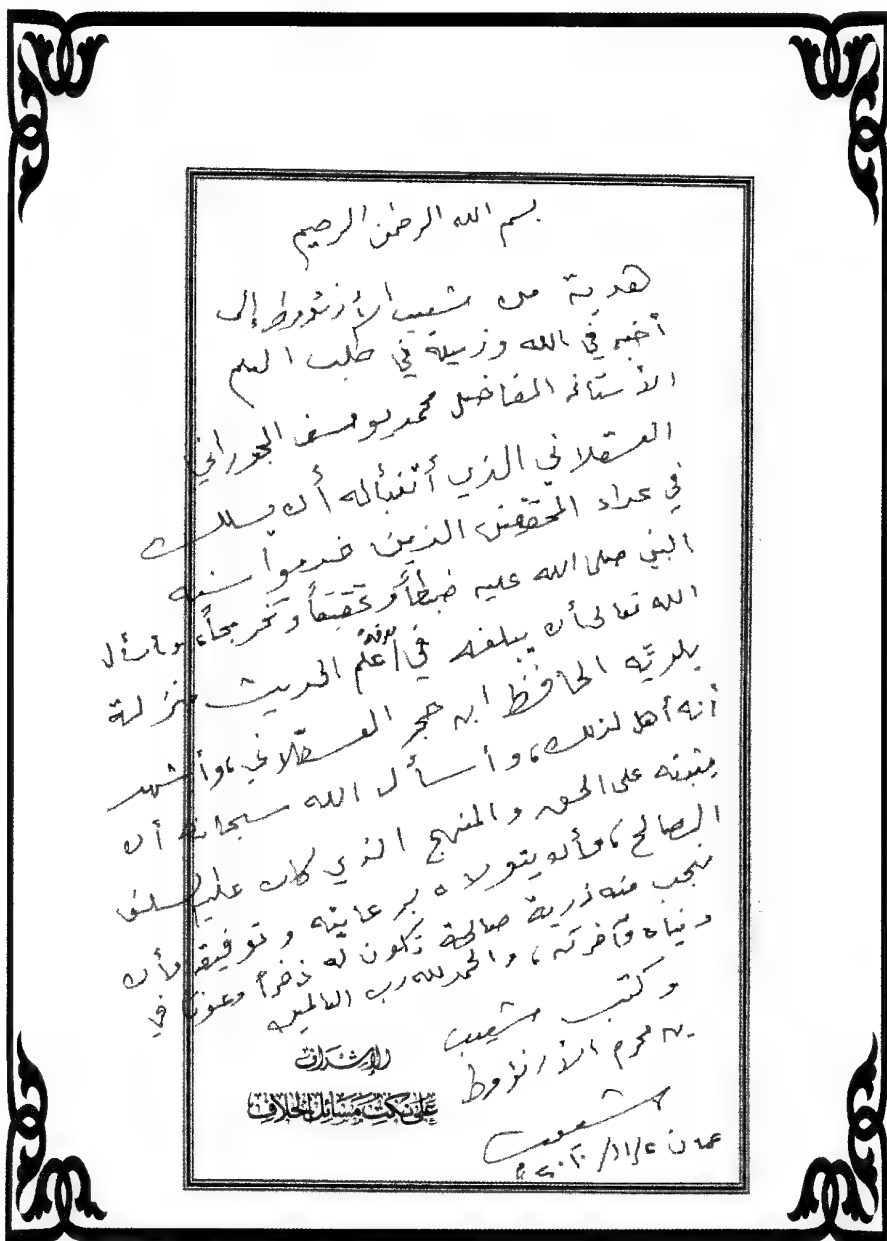 بسم الله الرحمن الرحيم
هدية من شعيب الأرنؤوط إلى
أخيه في الله وزميله في طلب العلم
الأستاذ الفاضل محمد يوسف الجوراني
العسقلاني الذي أتنبأ له أن يسلك
في عداد المحققين الذين خدموا سنة
النبي صلى الله عليه ضبطاً وتحقيقاً وتخريجاً، وأسأل
الله تعالى أن يبلغه في معرفة علم الحديث منزلة
بلديّه الحافظ ابن حجر العسقلاني، وأشهد
أنه أهل لذلك، وأسأل الله سبحانه أن
يثبته على الحق والمنهج الذي كان عليه السلف
الصالح، وأن يتولاه برعايته وتوفيقه وأن
ينجب منه ذرية صالحة تكون له ذخراً وعوناً في
دنياه وآخرته، والحمد لله رب العالمين
وكتب شعيب
بن محرم الأرنؤوط
الإشراف
على نكت مسائل الخلاف
شعيب
عمان